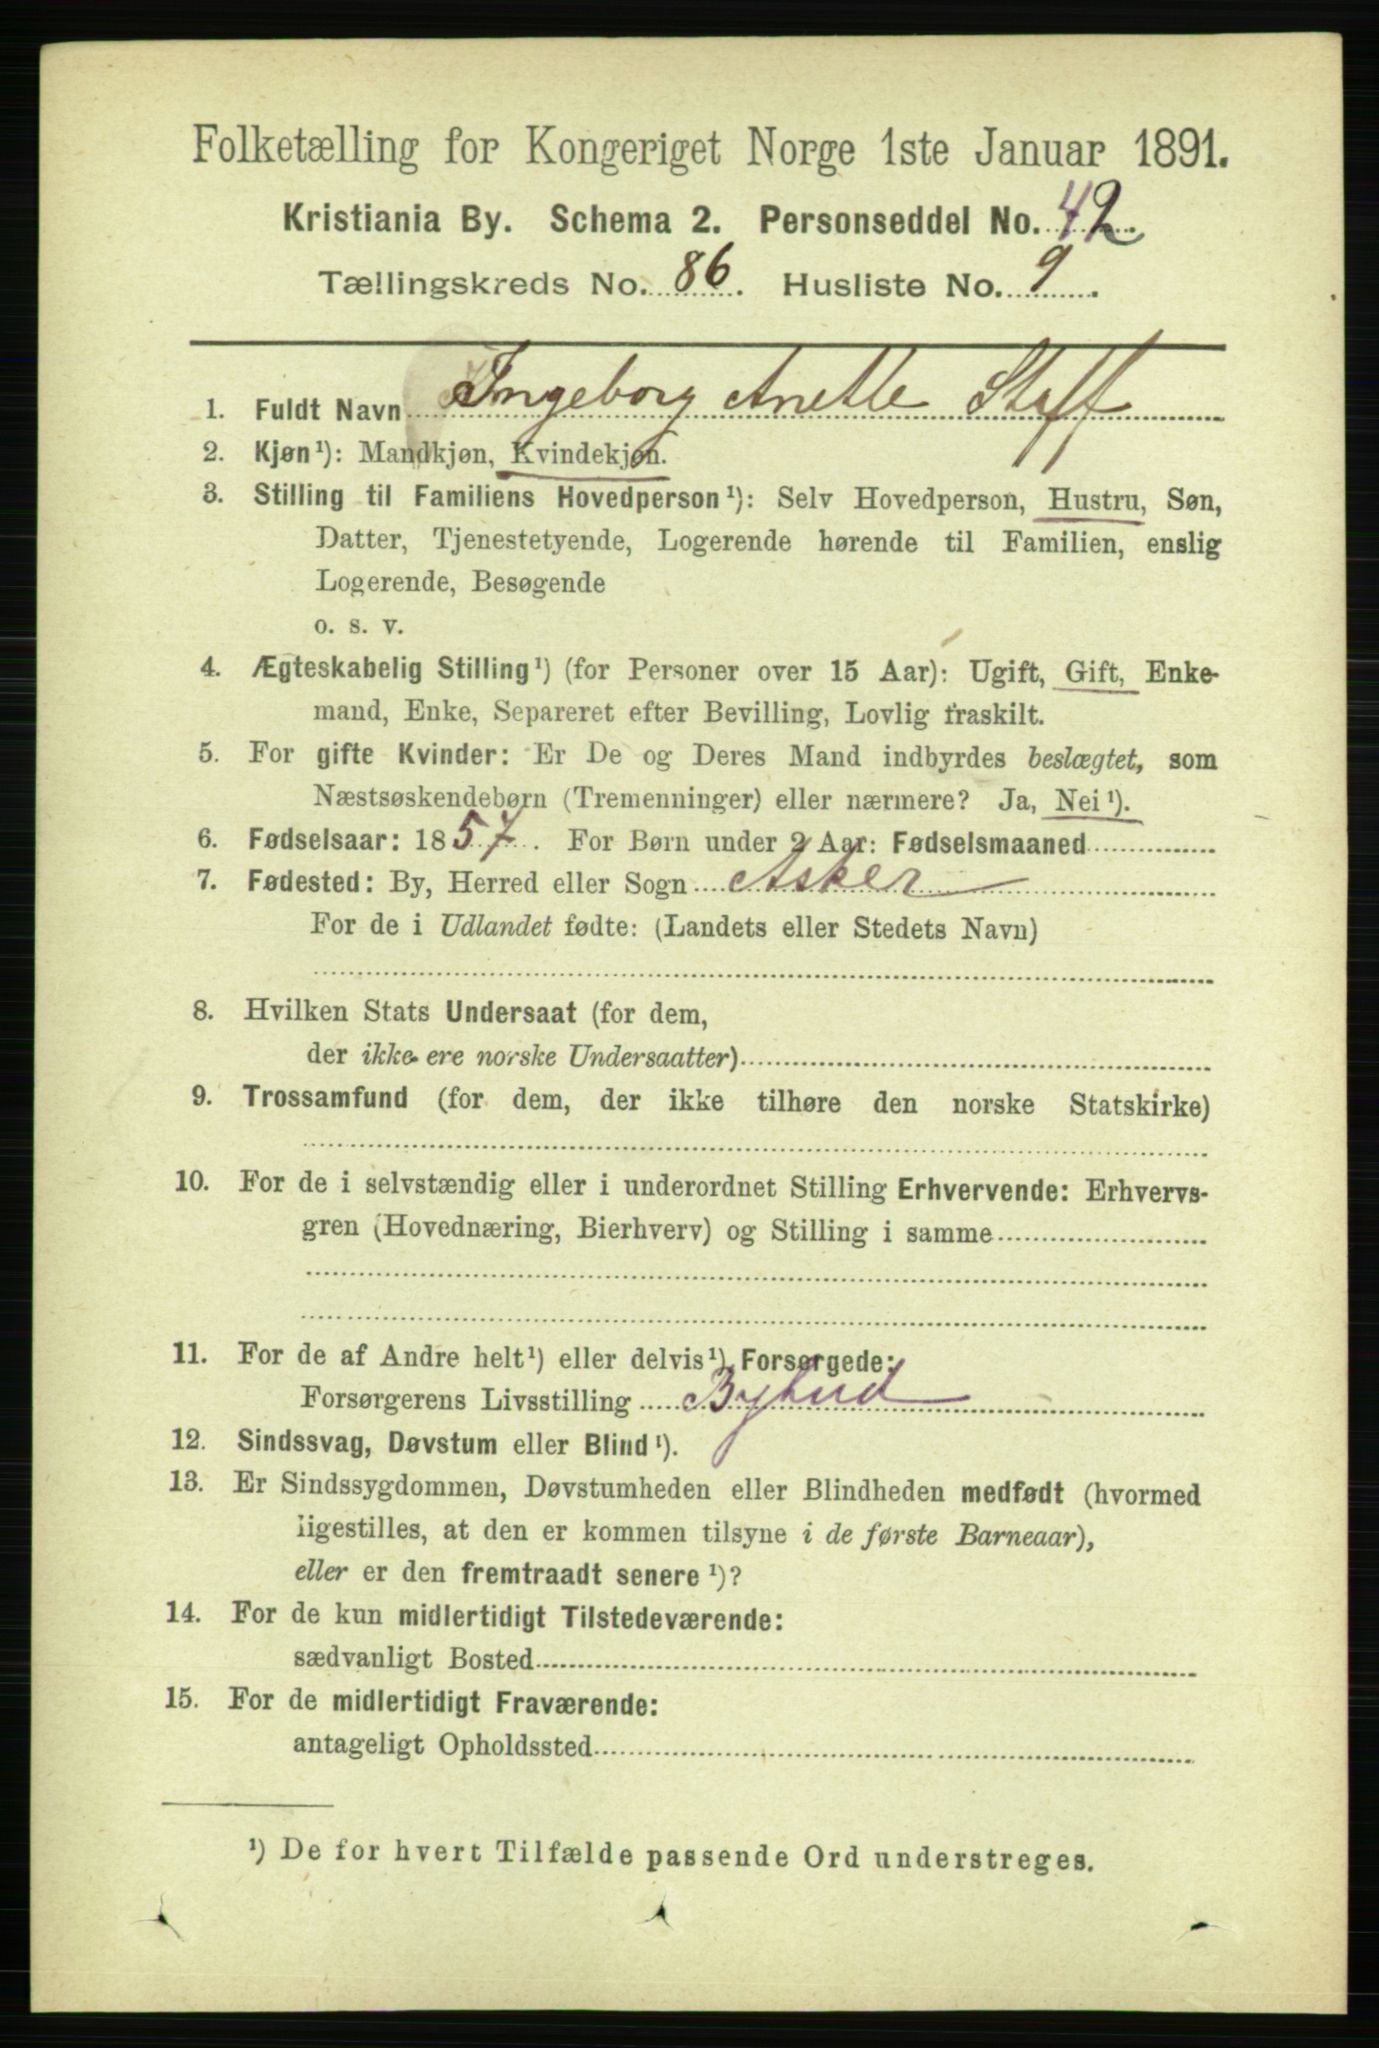 Folketælling for Kongeriget Norge 1ste Januar 1891.
Kristiania By. Schema 2. Personseddel No. 42.
Tællingskreds No. 86. Husliste No. 9.
1. Fuldt Navn Ingeborg Anette Staff
2. Kjøn¹): Mandkjøn, Kvindekjøn.
3. Stilling til Familiens Hovedperson¹): Selv Hovedperson, Hustru, Søn,
Datter, Tjenestetyende, Logerende hørende til Familien, enslig
Logerende, Besøgende
o. s. v.
4. Ægteskabelig Stilling¹) (for Personer over 15 Aar): Ugift, Gift, Enke-
mand, Enke, Separeret efter Bevilling, Lovlig fraskilt.
5. For gifte Kvinder: Er De og Deres Mand indbyrdes beslægtet, som
Næstsøskendebørn (Tremenninger) eller nærmere? Ja, Nei¹).
6. Fødselsaar: 1857. For Børn under 2 Aar: Fødselsmaaned
7. Fødested: By, Herred eller Sogn Asker
For de i Udlandet fødte: (Landets eller Stedets Navn)
8. Hvilken Stats Undersaat (for dem,
der ikke ere norske Undersaatter)
9. Trossamfund (for dem, der ikke tilhøre den norske Statskirke)
10. For de i selvstændig eller i underordnet Stilling Erhvervende: Erhvervs-
gren (Hovednæring, Bierhverv) og Stilling i samme
11. For de af Andre helt¹) eller delvis¹) Forsørgede:
Forsørgerens Livsstilling Bybud
12. Sindssvag, Døvstum eller Blind¹).
13. Er Sindssygdommen, Døvstumheden eller Blindheden medfødt (hvormed
ligestilles, at den er kommen tilsyne i de første Barneaar),
eller er den fremtraadt senere¹)?
14. For de kun midlertidigt Tilstedeværende:
sædvanligt Bosted
15. For de midlertidigt Fraværende:
antageligt Opholdssted
¹) De for hvert Tilfælde passende Ord understreges.